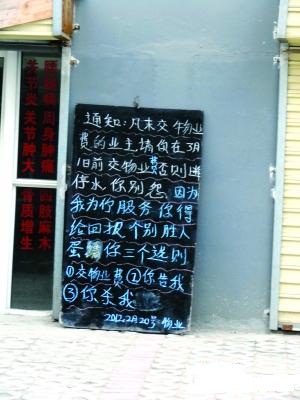 通知:凡未交物业
费的业主请自在3月
1日前交物业费否则
停水你别怨因为
我为你服务你得
给回报个别胜人
蛋请你三个选则
①交物业费②你告我
③你杀我
2012.2月20号 物业
腰腿痛
周身痛
关节炎
关节肿大
四肢麻木
骨质增生